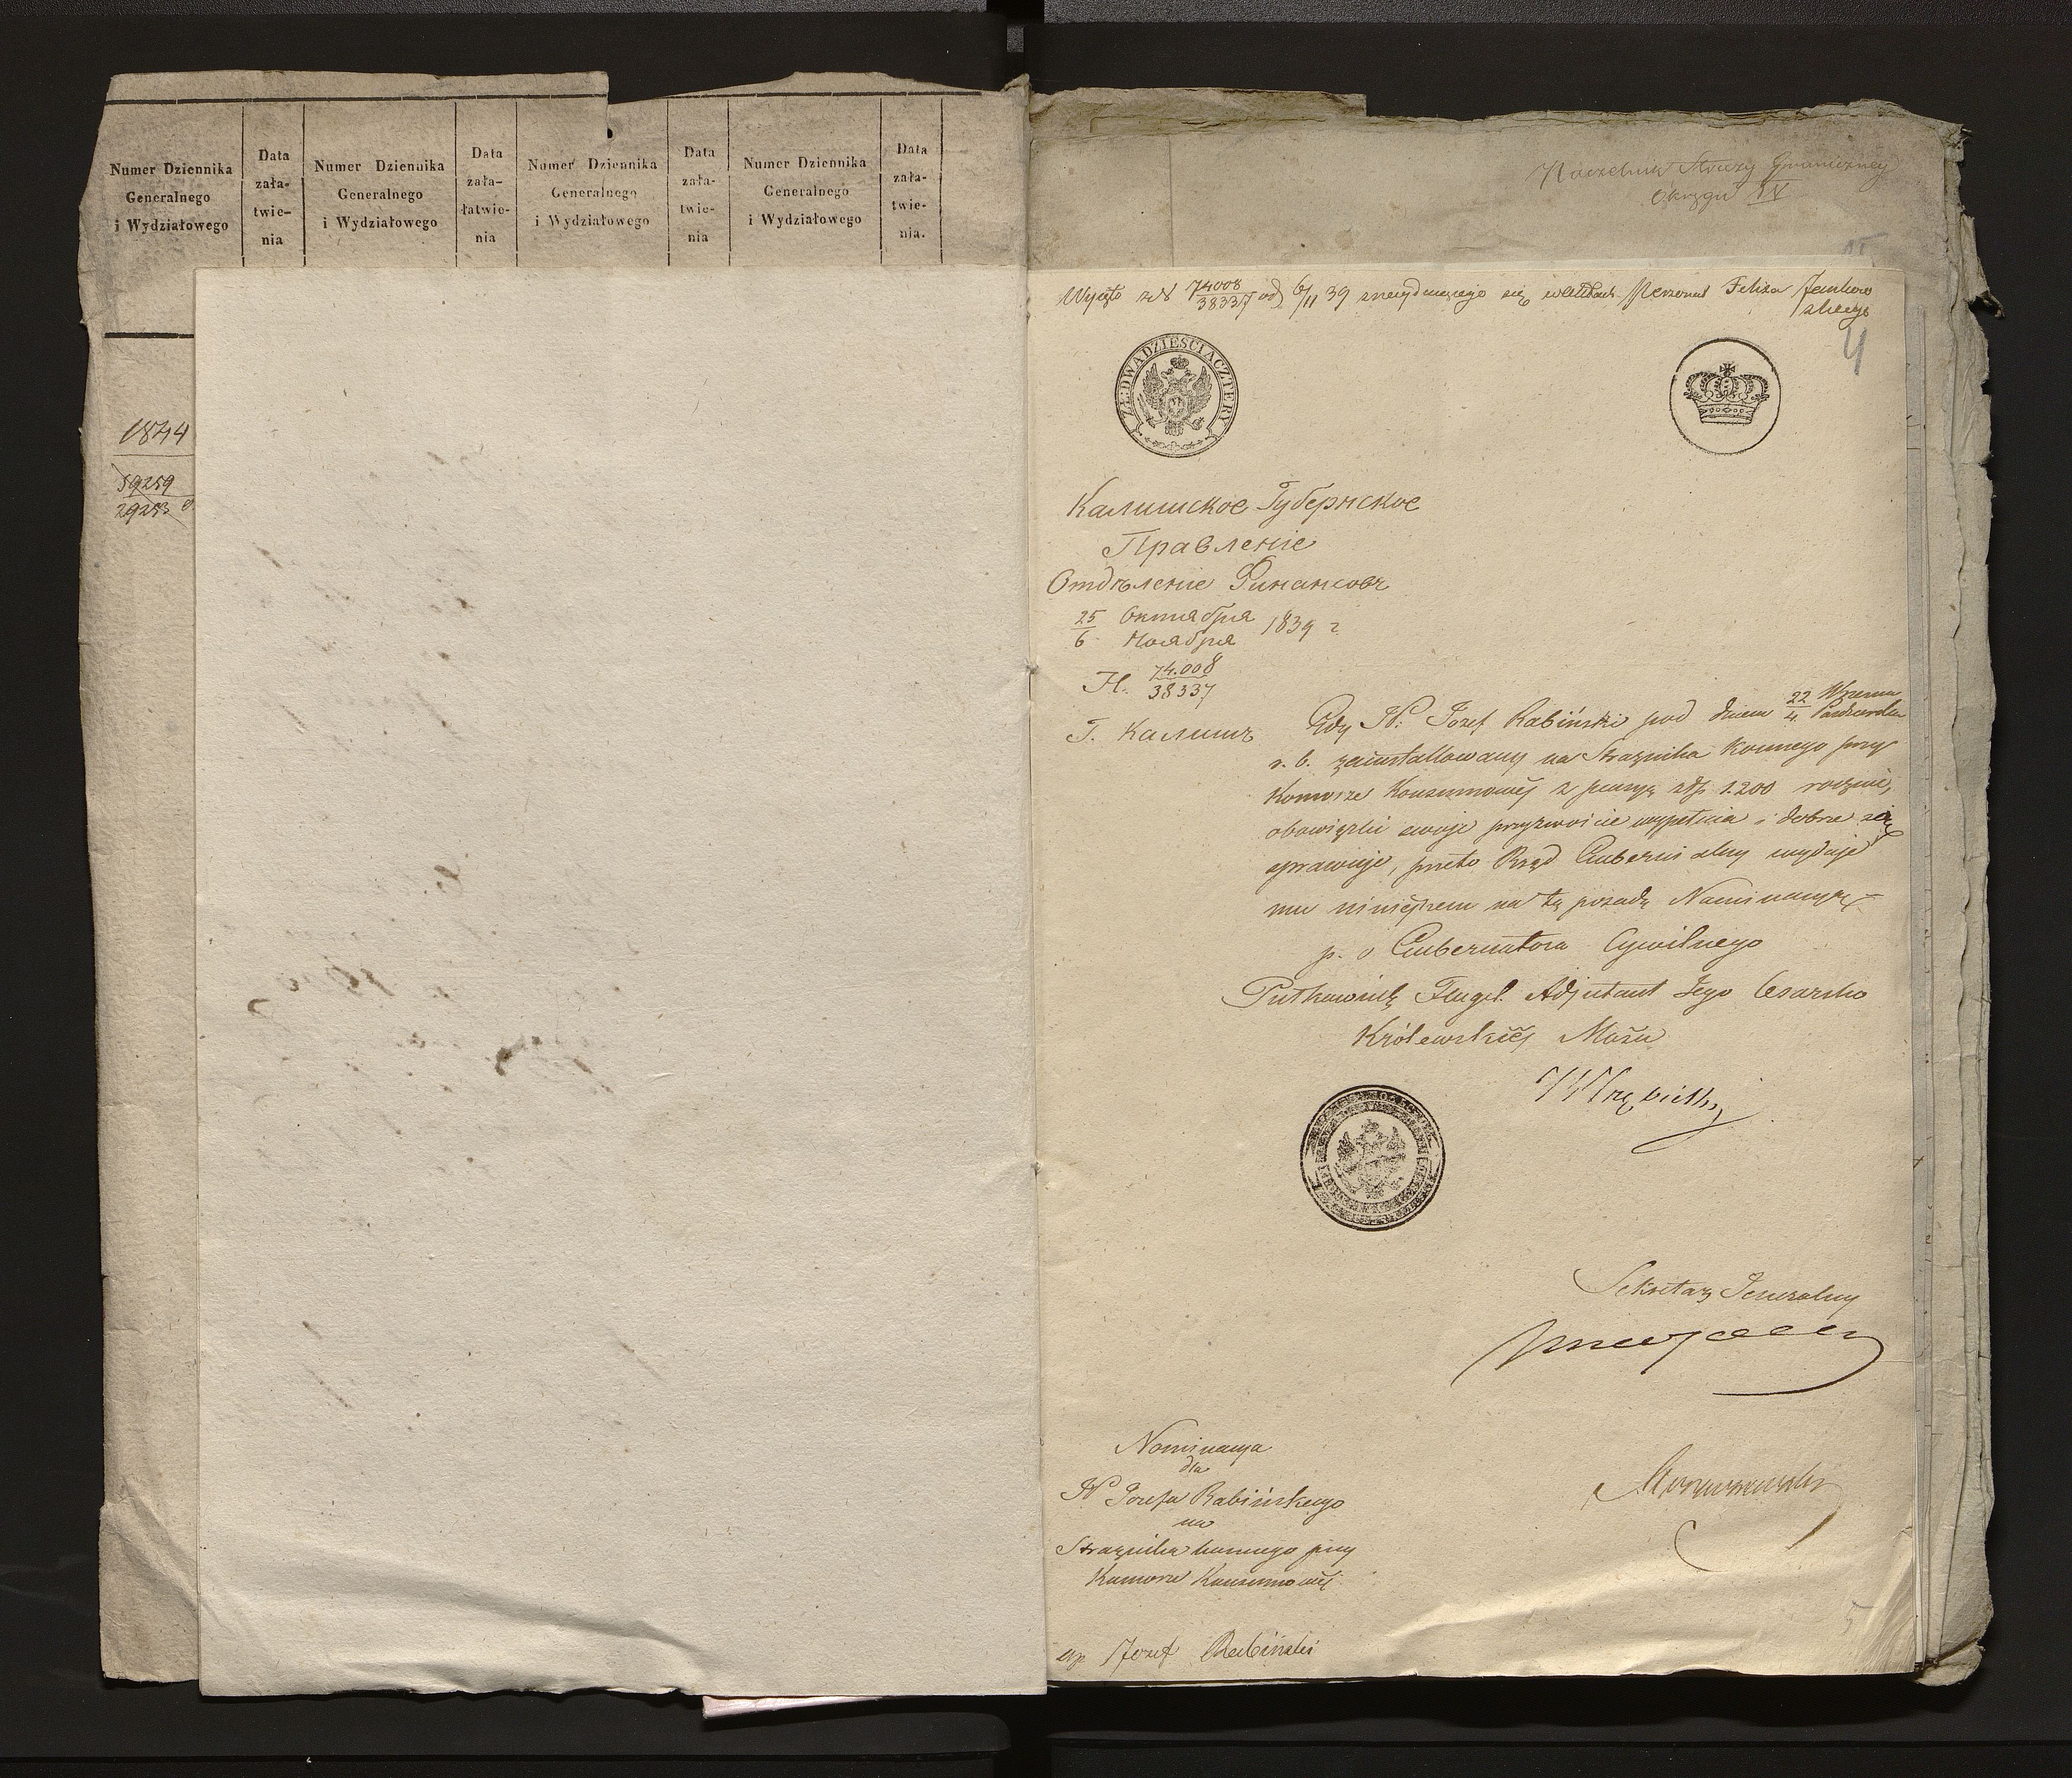 Numer Dziennika Generalnego i Wydziałowego
Data zała- twie- nia
Numer Dziennika Generalnego i Wydziałowego
Data zała- łatwie- nia
Numer Dziennika Generalnego i Wydziałowego
Data zała- twie- nia
Numer Dziennika Generalnego i Wydziałowego
Data zała- twie- nia.
1844
59259
29253
Naczelnik Straży Graniczney
Okręgu IV
Wyięto z N 74008/38337 od 6/11 39 znaydującego się w aktach Personal Felixa Jankow
skiego
4
ZŁ: DWADZIEŚCIA CZTERY
Калишское Губернское
Правленіе
Отдѣленіе Финансовъ
25/6 Октября/Ноября 1839 г.
Н. 74.008/38337
Г. Калишъ
Gdy W: Jozef Rabiński pod dniem 22/4 Wrzesnia/Pazdziernika
r. b. zainstallowany na Strażnika Konnego przy
Komorze Konsumowéj z pensyą złp 1.200 rocznie,
obowiązki swoje przyzwoicie wypełnia i dobrze się
sprawuje, przeto Rząd Gubernialny wydaje
mu niniejszem na tę posadę Nominacyą
p. o Gubernatora Cywilnego
Pułkownik Flugel Adjutant Jego Cesarsko
Królewskiéj Mości
Sekretarz Jeneralny
Nominacya
dla
W Jozefa Rabińskiego
na
Strażnika konnego przy
Komorze Konsumowéj
Jozef Rabiński
5